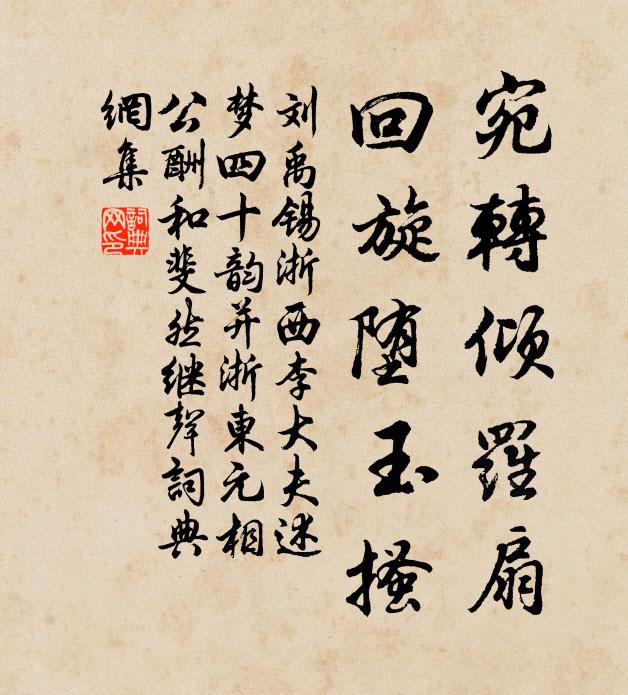 宛轉傾羅扇
回旋堕玉搔
刘禹锡浙西李大夫述
梦四十韵并浙東元相
公酬和斐然继聲詞典
網集
詞典網印